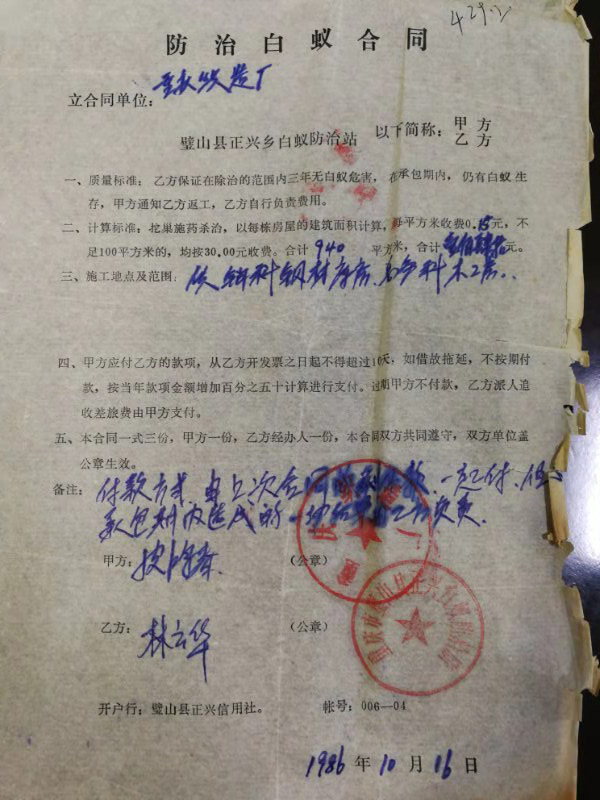 429.2
防治白蚁合同
立合同单位：
璧山县正兴乡白蚁防治站 以下简称：甲方
乙方
一、质量标准：乙方保证在除治的范围内三年无白蚁危害，在承包期内，仍有白蚁生
存，甲方通知乙方返工，乙方自行负责费用。
二、计算标准：挖巢施药杀治，以每栋房屋的建筑面积计算，每平方米收费0.15元，不
足100平方米的，均按30.00元收费。合计940平方米，合计元。
三、施工地点及范围：供销科钢材库房、
四、甲方应付乙方的款项，从乙方开发票之日起不得超过10天，如借故拖延，不按期付
款，按当年款项金额增加百分之五十计算进行支付。过期甲方不付款，乙方派人追
收差旅费由甲方支付。
五、本合同一式三份，甲方一份，乙方经办人一份，本合同双方共同遵守，双方单位盖
公章生效。
备注：付款方式，上次合同款一起付，
承包期内造成的一切后果乙方负责。
甲方： （公章）
乙方：林云华 （公章）
开户行：璧山县正兴信用社。 帐号：006—04
1986年10月16日